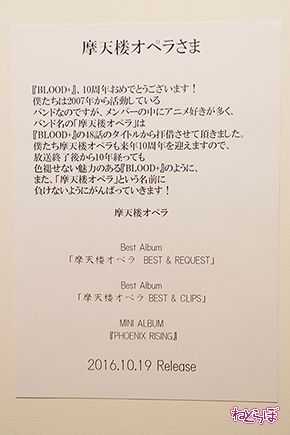 摩天楼オペラさま
『BLOOD+』、10周年おめでとうございます！
僕たちは2007年から活動している
バンドなのですが、メンバーの中にアニメ好きが多く、
バンド名の「摩天楼オペラ」は
『BLOOD+』の48話のタイトルから拝借させて頂きました。
僕たち摩天楼オペラも来年10周年を迎えますので、
放送終了後から10年経っても
色褪せない魅力のある『BLOOD+』のように、
また、「摩天楼オペラ」という名前に
負けないようにがんばっていきます！
摩天楼オペラ
Best Album
「摩天楼オペラ BEST & REQUEST」
Best Album
「摩天楼オペラ BEST & CLIPS」
MINI ALBUM
『PHOENIX RISING』
2016.10.19 Release
ねとらぼ